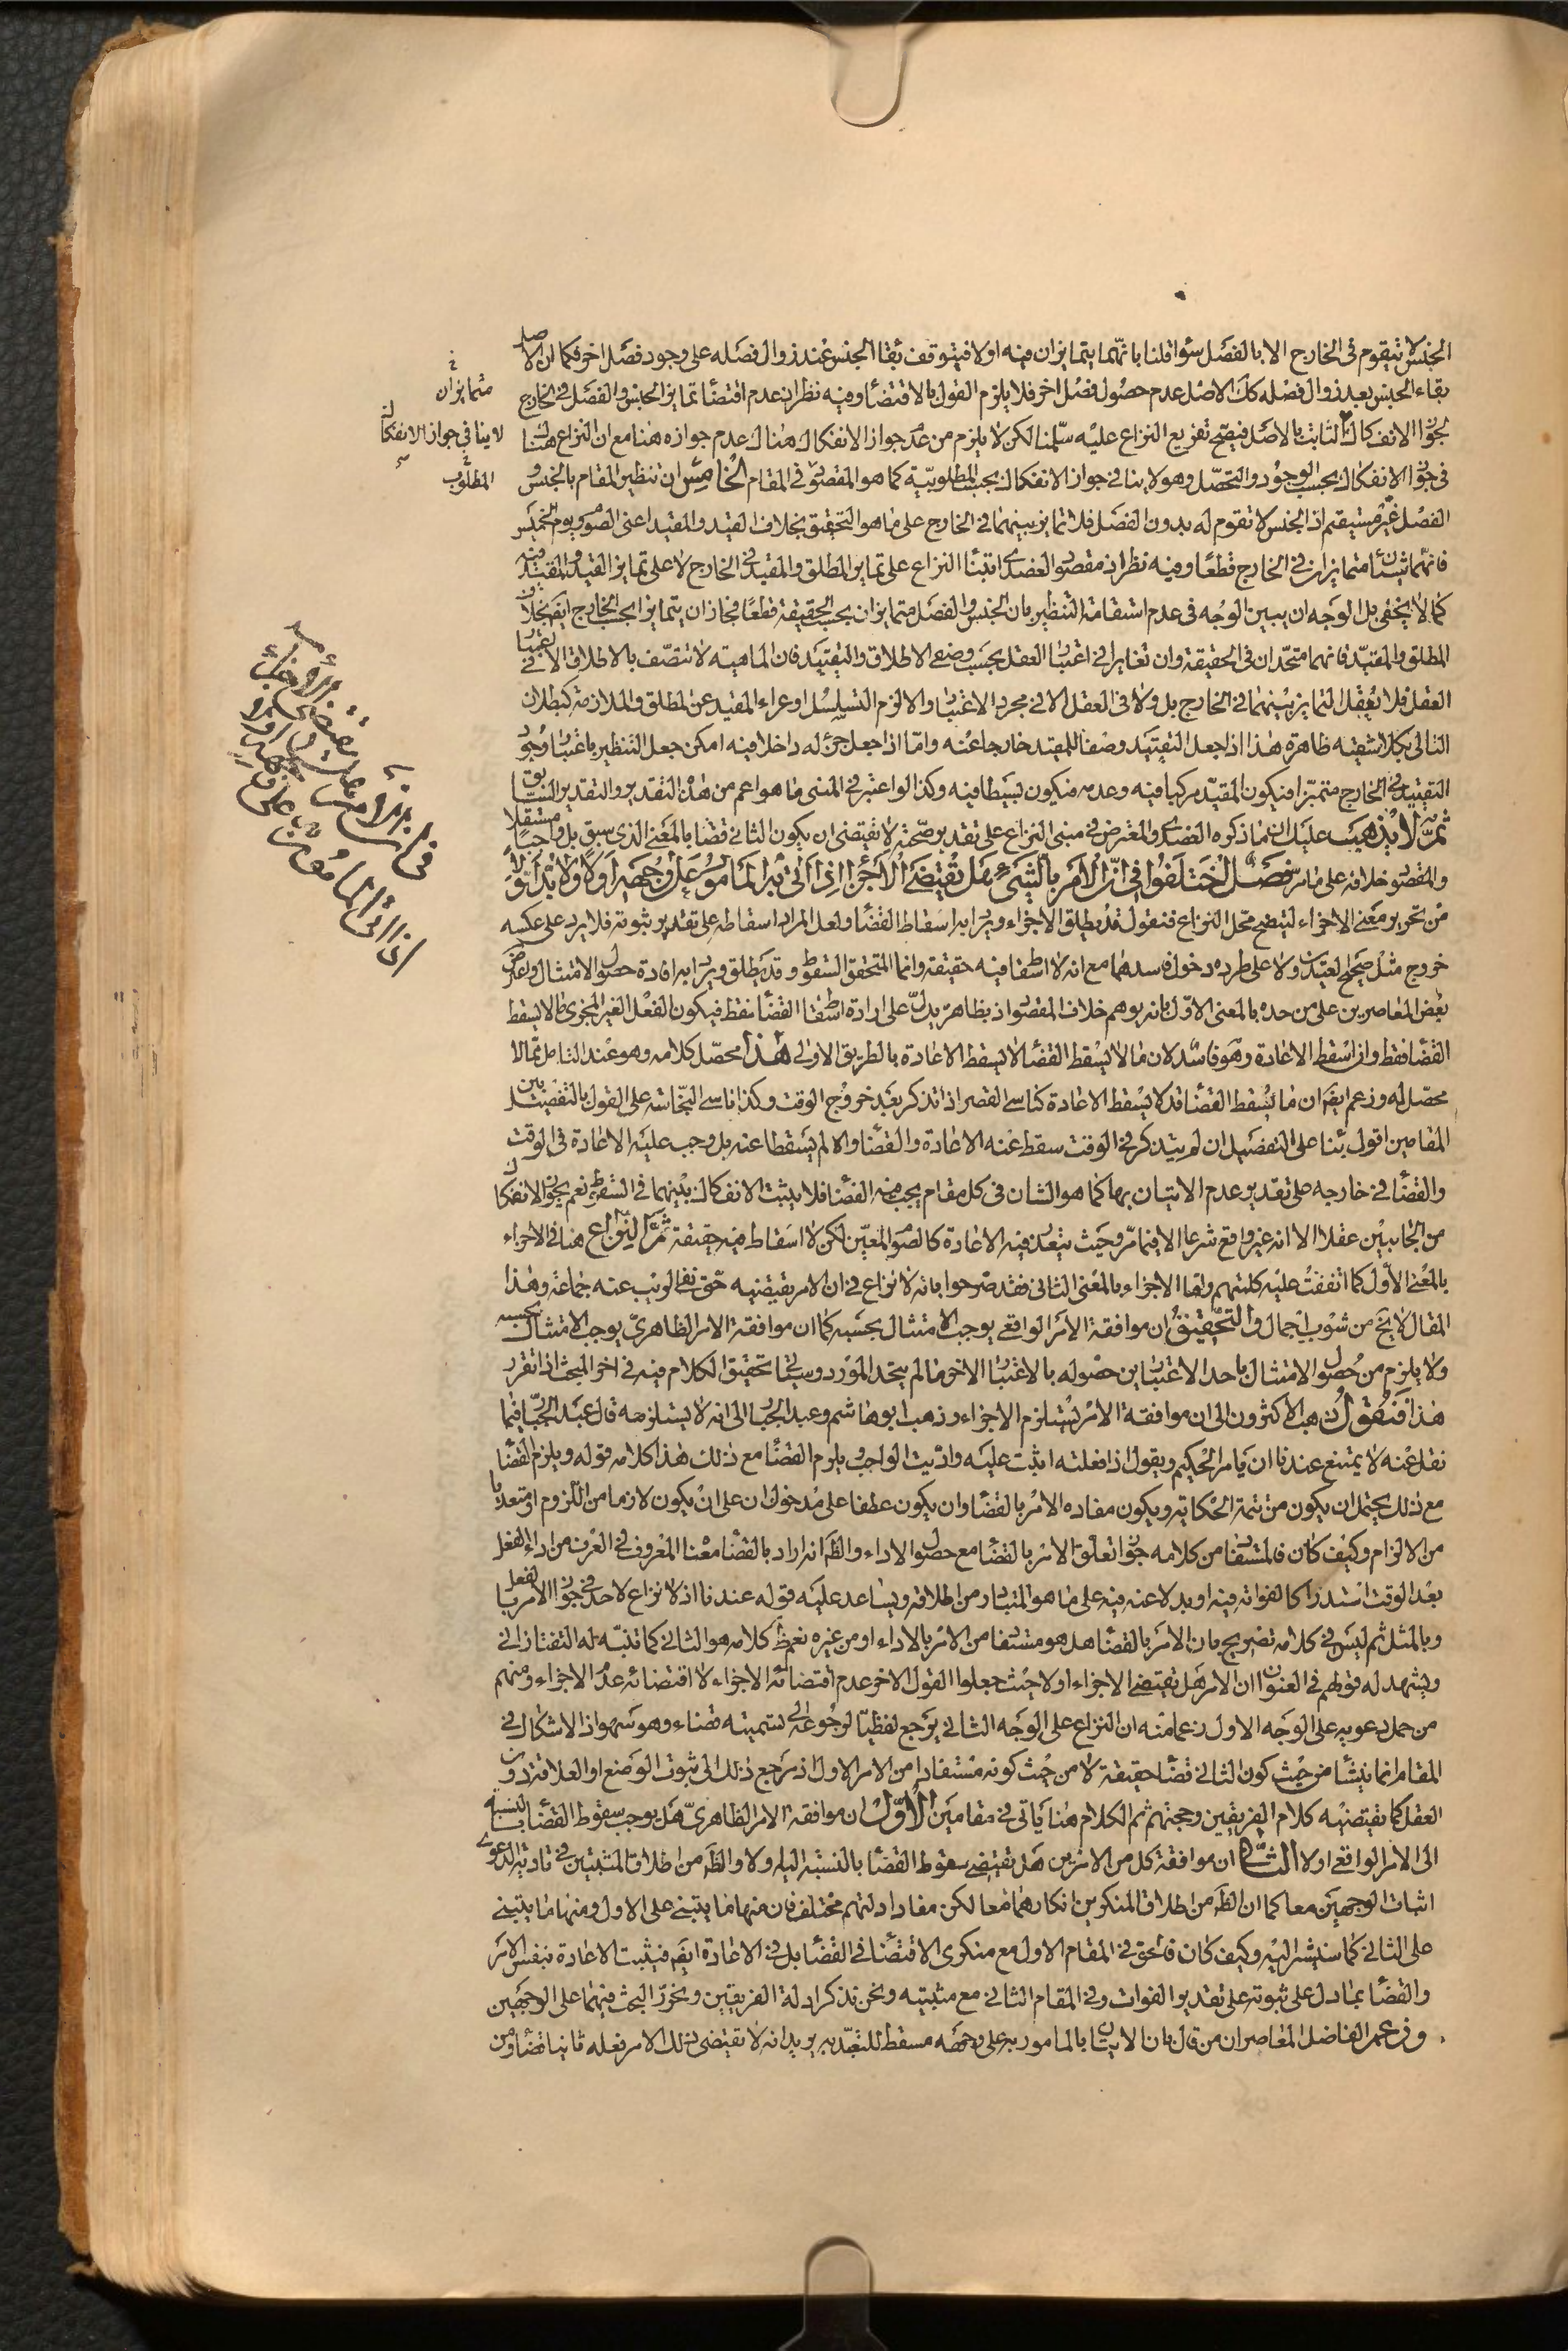 الجنس لا يتقوم فى الخارج الا بالفصل سواء قلنا بانهما يتمايزان فيه او لا فيتوقف بقاء الجنس عند زوال فصله على وجود فصل اخر فكما ان الاصل
بقاء الجنس بعد زوال فصله كك الاصل عدم حصول فصل اخر فلا يلزم القول بالاقتضاء وفيه نظر لان عدم اقتضاء تمايز الجنس والفصل فى الخارج
لجواز الانفكاك الثابت بالاصل فيصح تفريع النزاع عليه سلمنا لكن لا يلزم من عدم جواز الانفكاك هناك عدم جوازه هنا مع ان النزاع هناك
فى جواز الانفكاك بحسب الوجود والتحصل وهو لا ينافى جواز الانفكاك بحسب المطلوبية كما هو المقصود فى المقام الخامس ان تنظير المقام بالجنس و
الفصل غير مستقيم اذ الجنس لا تقوم له بدون الفصل فلا تمايز بينهما فى الخارج على ما هو التحقيق بخلاف القيد والمقيد اعنى الصوم ويوم الخميس
فانهما شيئان متمايزان فى الخارج قطعا وفيه نظر اذ مقصود العضدى ابتناء النزاع على تمايز المطلق والمقيد فى الخارج لا على تمايز القيد والمقيد فيه
كما لا يخفى بل الوجه ان يبين الوجه فى عدم استقامة التنظير بان الجنس والفصل متمايزان بحسب الحقيقة قطعا فجاز ان يتمايزا بحسب الخارج ايضا بخلاف
المطلق والمقيد فانهما متحدان فى الحقيقة وان تغايرا فى اعتبار العقل بحسب وصفى الاطلاق والتقييد فان الماهية لا تتصف بالاطلاق الا فى اعتبار
العقل فلا يعقل التمايز بينهما فى الخارج بل ولا فى العقل الا فى مجرد الاعتبار والا لزم التسلسل او عراء المقيد عن المطلق والملازمة كبطلان
التالى بكلا شقيه ظاهرة هذا اذا جعل التقييد وصفا للمقيد خارجا عنه واما اذا جعل جزء له داخلا فيه امكن جعل التنظير باعتبار وجود
التقييد فى الخارج متميزا فيكون المقيد مركبا فيه وعدمه فيكون بسيطا فيه وكذا لو اعتبر فى المبنى ما هو اعم من هذا التقدير والتقدير السابق
ثم لا يذهب عليك ان ما ذكره العضدى والمعترض فى مبنى النزاع على تقدير صحته لا يقتضى ان يكون الثانى قضاء بالمعنى الذى سبق بل واجبا مستقلا
والمقصود خلافه على ما مر فصل اختلفوا فى ان الامر بالشئ هل يقتضى الاجزاء اذا اتى بالمامور به على وجهه او لا ولا بد اولا
من تحرير معنى الاجزاء ليتضح محل النزاع فنقول قد يطلق الاجزاء ويراد به اسقاط القضاء ولعل المراد اسقاطه على تقدير ثبوته فلا يرد على عكسه
خروج مثل صحيح العيدين ولا على طرده دخول فاسدهما مع انه لا اسقاط فيه حقيقة وانما المتحقق السقوط وقد يطلق ويراد به افادة حصول الامتثال واعترض
بعض المعاصرين على من حده بالمعنى الاول بانه يوهم خلاف المقصود اذ بظاهره يدل على ارادة اسقاط القضاء فقط فيكون الفعل الغير المجزى ما لا يسقط
القضاء فقط وان اسقط الاعادة وهو فاسد لان ما لا يسقط القضاء لا يسقط الاعادة بالطريق الاولى هذا محصل كلامه وهو عند التامل مما لا
محصل له وزعم ايضا ان ما يسقط القضاء قد لا يسقط الاعادة كناسى القصر اذا تذكر بعد خروج الوقت وكذا ناسى النجاسة على القول بالتفصيل بين
المقامين اقول بناء على التفصيل ان لم يتذكر فى الوقت سقط عنه الاعادة والقضاء والا لم يسقطا عنه بل وجب عليه الاعادة فى الوقت
والقضاء فى خارجه على تقدير عدم الاتيان بها كما هو الشان فى كل مقام يجب فيه القضاء فلا يثبت الانفكاك بينهما فى السقوط نعم يجوز الانفكاك
من الجانبين عقلا الا انه غير واقع شرعا الا فيما مر وحيث يتعذر فيه الاعادة كالصوم المعين لكن لا اسقاط فيه حقيقة ثم النزاع هنا فى الاجزاء
بالمعنى الاول كما اتفقت عليه كلمتهم واما الاجزاء بالمعنى الثانى فقد صرحوا بانه لا نزاع فى ان الامر يقتضيه حتى نفى الريب عنه جماعة وهذا
المقال لا يخ من شوب اجمال والتحقيق ان موافقة الامر الواقعى يوجب الامتثال بحسبه كما ان موافقة الامر الظاهرى يوجب الامتثال بحسبه
ولا يلزم من حصول الامتثال باحد الاعتبارين حصوله بالاعتبار الاخر ما لم يتحد المورد وسياتى تحقيق الكلام فيه فى اخر المبحث اذا تقرر
هذا فنقول ذهب الاكثرون الى ان موافقة الامر يستلزم الاجزاء وذهب ابو هاشم وعبد الجبار الى انه لا يستلزمه قال عبد الجبار فيما
نقل عنه لا يمتنع عندنا ان يامر الحكيم ويقول اذا فعلته اثبت عليه واديت الواجب ويلزم القضاء مع ذلك هذا كلامه قوله ويلزم القضاء
مع ذلك يحتمل ان يكون من تتمة الحكاية ويكون مفاده الامر بالقضاء وان يكون عطفا على مدخول ان على ان يكون لازما من اللزوم او متعديا
من الالزام وكيف كان فالمستفاد من كلامه جواز تعلق الامر بالقضاء مع حصول الاداء والظ انه اراد بالقضاء معناه المعروف فى العرف من اداء الفعل
بعد الوقت استدراكا لفواته فيه او بدلا عنه فيه على ما هو المتبادر من اطلاقه ويساعد عليه قوله عندنا اذ لا نزاع لاحد فى جواز الامر بالفعل
وبالمثل ثم ليس فى كلامه تصريح بان الامر بالقضاء هل هو مستفاد من الامر بالاداء او من غيره نعم ظ كلامه هو الثانى كما تنبه له التفتازانى
ويشهد له قولهم فى العنوان ان الامر هل يقتضى الاجزاء او لا حيث جعلوا القول الاخر عدم اقتضائه الاجزاء لا اقتضائه عدم الاجزاء ومنهم
من حمل دعويه على الوجه الاول زعما منه ان النزاع على الوجه الثانى يرجع لفظيا لرجوعه الى تسميته قضاء وهو سهو اذ الاشكال فى
المقام انما ينشأ من حيث كون الثانى قضاء حقيقة لا من حيث كونه مستفادا من الامر الاول اذ مرجع ذلك الى ثبوت الوضع او العلاقة دون
العقل كما يقتضيه كلام الفريقين وحججهم ثم الكلام هنا ياتى فى مقامين الاول ان موافقة الامر الظاهرى هل يوجب سقوط القضاء بالنسبة
الى الامر الواقعى او لا الثانى ان موافقة كل من الامرين هل يقتضى سقوط القضاء بالنسبة اليه او لا والظ من اطلاق المثبتين فى تادية الدعوى
اثبات الوجهين معا كما ان الظ من اطلاق المنكرين انكارهما معا لكن مفاد ادلتهم مختلف فان منها ما يبتنى على الاول ومنها ما يبتنى
على الثانى كما سنشير اليه وكيف كان فالحق فى المقام الاول مع منكرى الاقتضاء فى القضاء بل فى الاعادة ايضا فيثبت الاعادة بنفس الامر
والقضاء بما دل على ثبوته على تقدير الفوات وفى المقام الثانى مع مثبتيه ونحن نذكر ادلة الفريقين ونحرر البحث فيهما على الوجهين
وزعم الفاضل المعاصر ان من قال بان الاتيان بالمامور به على وجهه مسقط للتعبد به يريد انه لا يقتضى ذلك الامر فعله ثانيا قضاء ومن
متمايزان
لا ينافى جواز الانفكاك
المطلوب
فى ان الامر
يقتضى الاجزاء
اذا اتى بالمامور به على وجهه